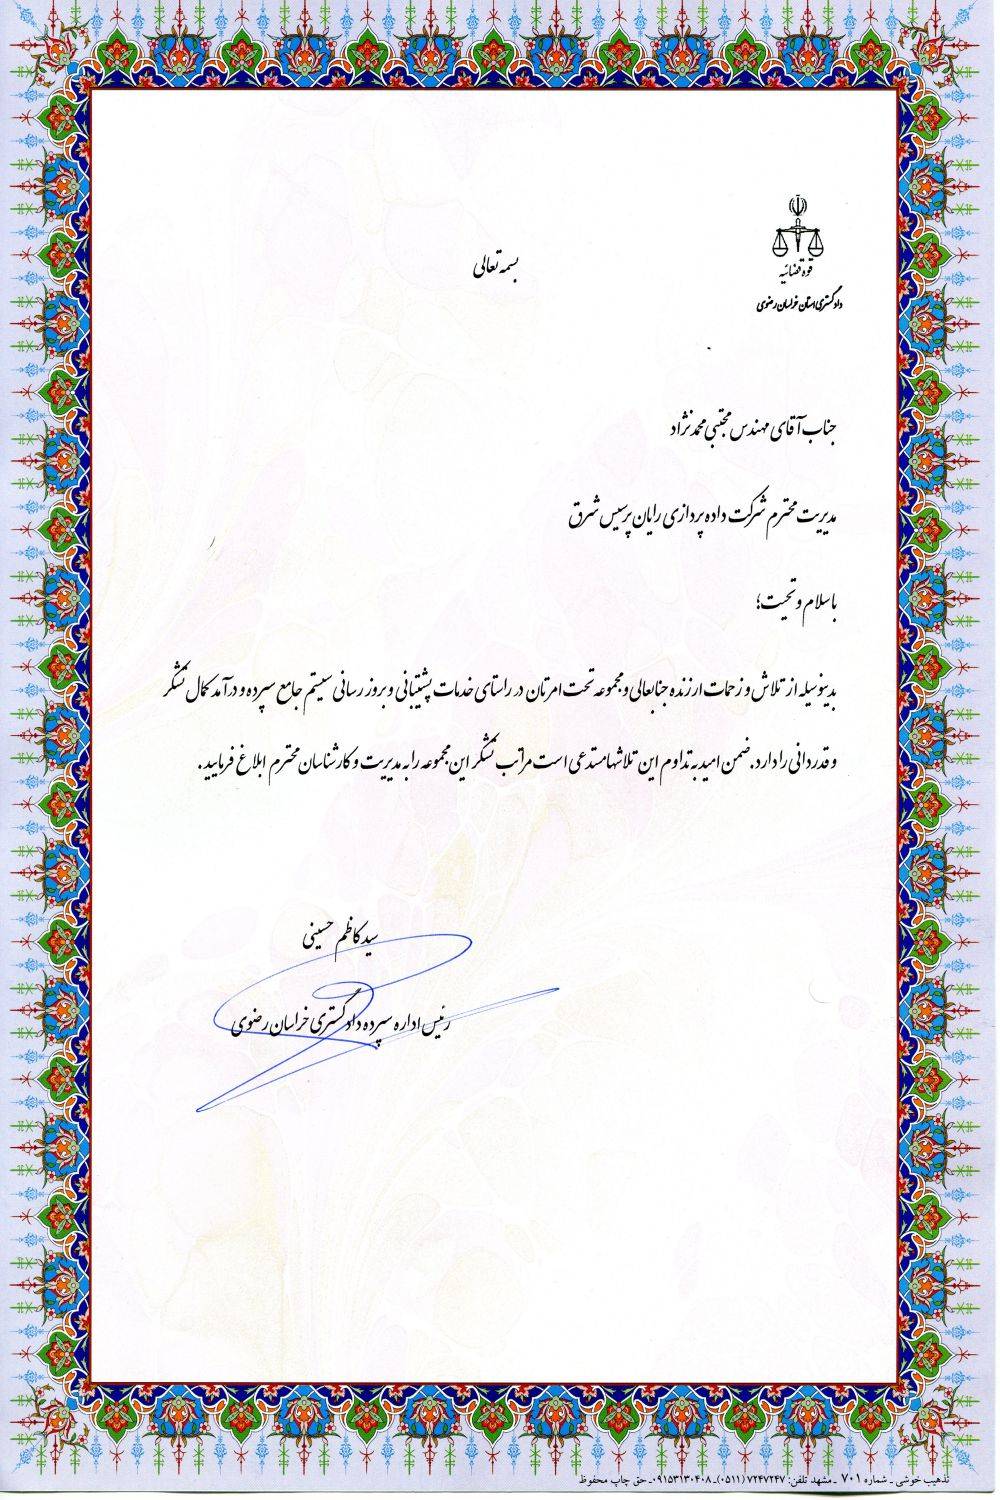 قوه قضائیه
دادگستری استان خراسان رضوی
بسمه تعالی
جناب آقای مهندس مجتبی محمدنژاد
مدیریت محترم شرکت داده پردازی رایان پرسیس شرق
باسلام و تحیت؛
بدینوسیله از تلاش و زحمات ارزنده جنابعالی و مجموعه تحت امرتان در راستای خدمات پشتیبانی و بروز رسانی سیستم جامع سپرده و درآمد کمال تشکر
و قدردانی را دارد. ضمن امید به تداوم این تلاشها مستدعی است مراتب تشکر این مجموعه را به مدیریت و کارشناسان محترم ابلاغ فرمایید.
سید کاظم حسینی
رئیس اداره سپرده دادگستری خراسان رضوی
تذهیب خوشی ـ شماره ۷۰۱ ـ مشهد تلفن: ۷۲۴۷۲۴۷ (۰۵۱۱)ـ ۰۹۱۵۳۱۳۰۴۰۸ـ حق چاپ محفوظ